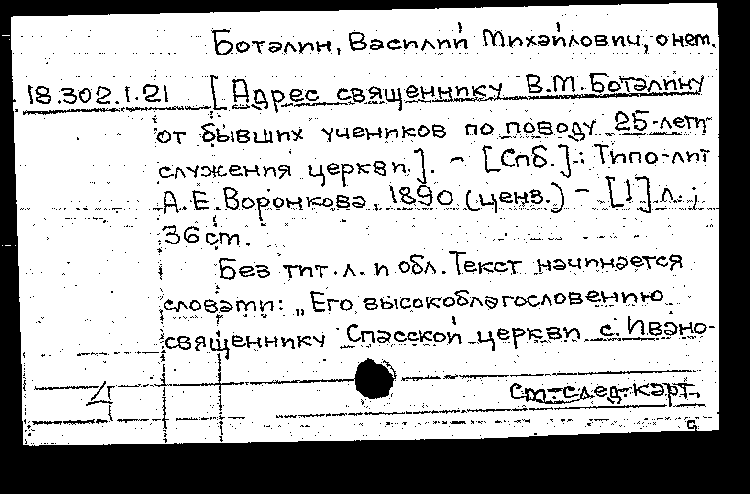 Боталин, Василий Михайлович, о нем.
18.302.1.21 [Адрес священнику В.М. Боталину
от бывших учеников по поводу 25-лети
служения церкви]. – [Спб.]: Типо-лит
А.Е. Воронкова, 1890 (ценз.) – [1] л.;
36 см.
Без тит. л. и обл. Текст начинается
словами: „Его высокоблагословению
священнику Спасской церкви с. Ивано-
см. след. карт.